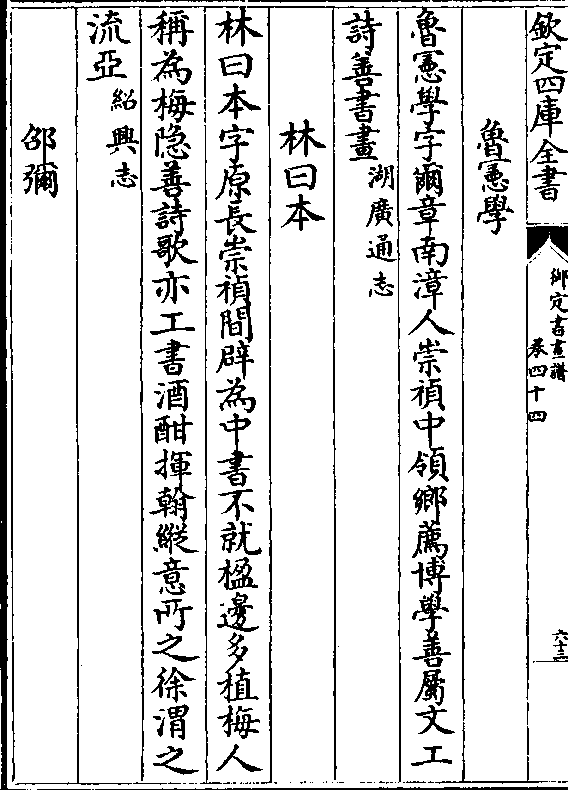 欽定四庫全書
御定書畫譜
卷四十四
六十三
魯憲學
魯憲學字爾章南漳人崇禎中領鄉薦博學善屬文工
詩善書畫湖廣通志
林曰本
林曰本字原長崇禎間辟為中書不就楹邊多植梅人
稱為梅隐善詩歌亦工書酒酣揮翰縱意所之徐渭之
流亞紹興志
邵彌